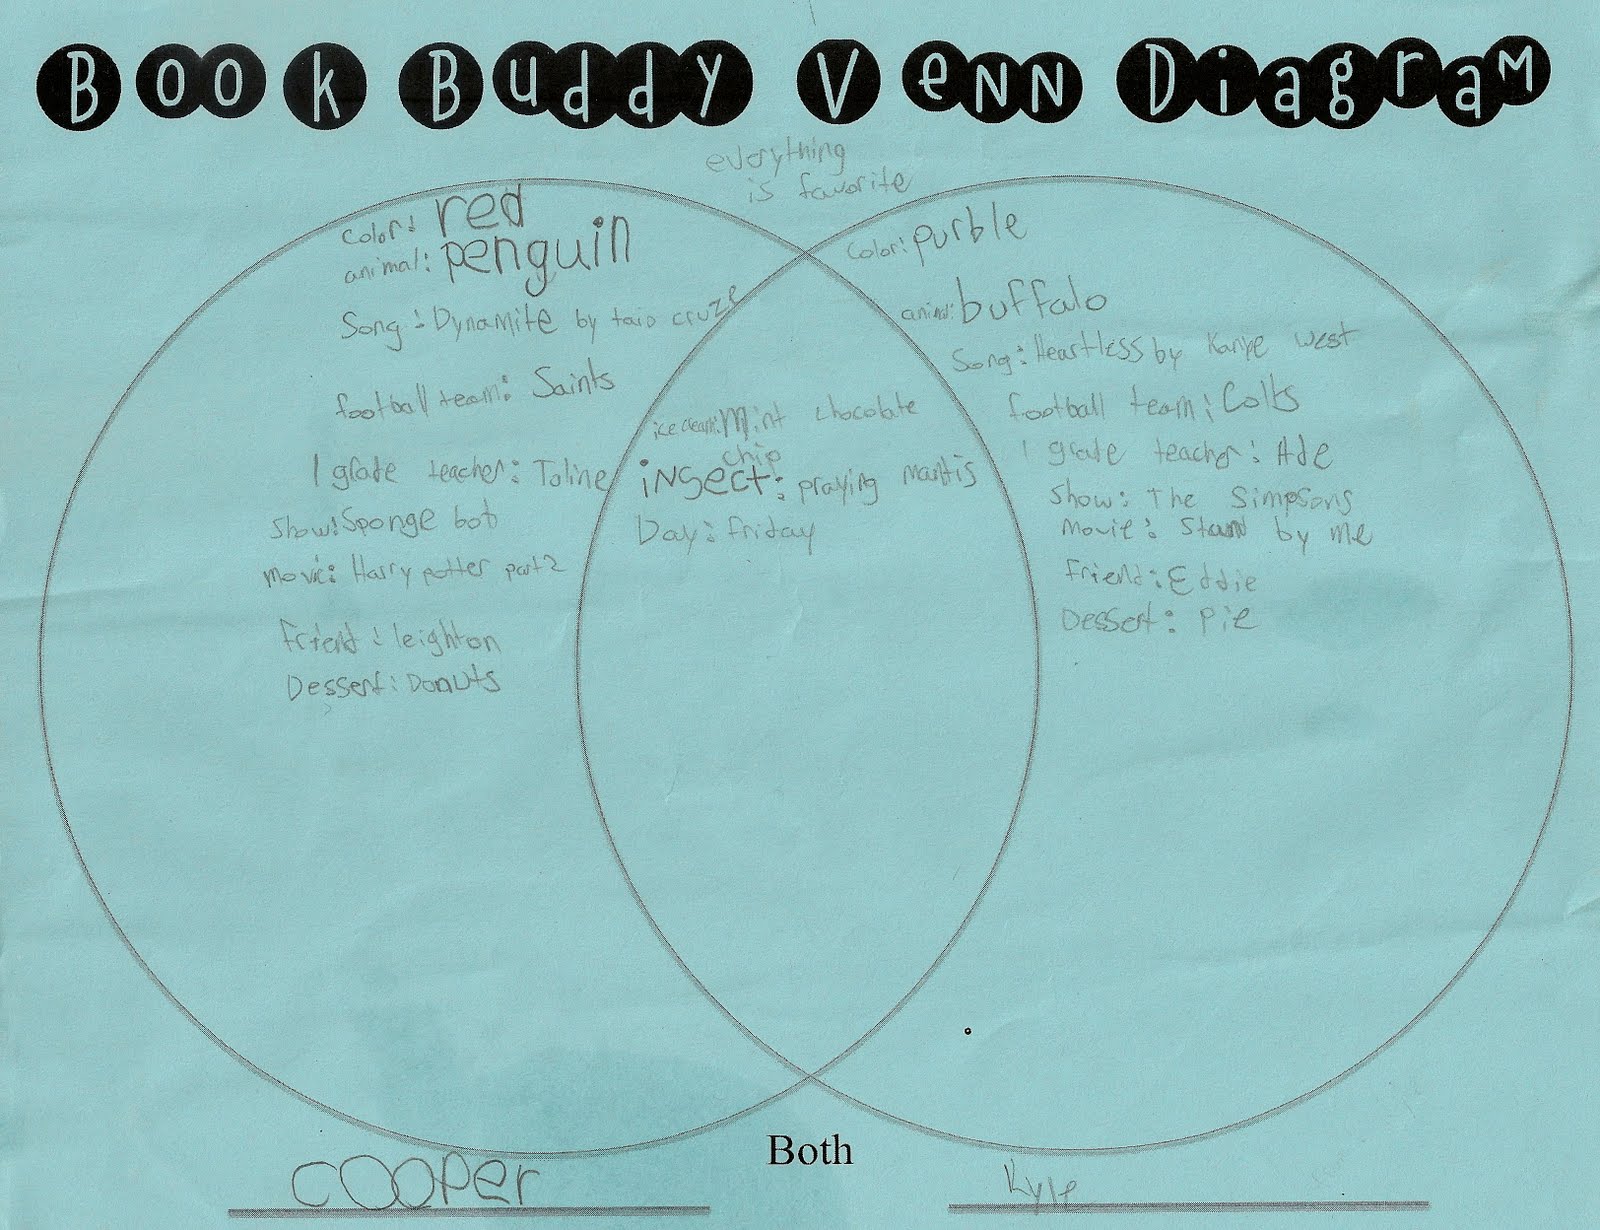 Book Buddy Venn Diagram
everything
is favorite
color: red
animal: penguin
Song: Dynamite by taio cruze
football team: Saints
1 grade teacher: Toline
Show: Sponge bob
movie: Harry potter part 2
friend: leighton
Dessert: Donuts
ice cream: Mint chocolate
chip
insect: praying mantis
Day: friday
color: purble
animal: buffalo
Song: Heartless by Kanye west
football team: Colts
1 grade teacher: Ade
Show: The Simpsons
Movie: Stand by me
friend: Eddie
Dessert: Pie
Both
Cooper
Kyle